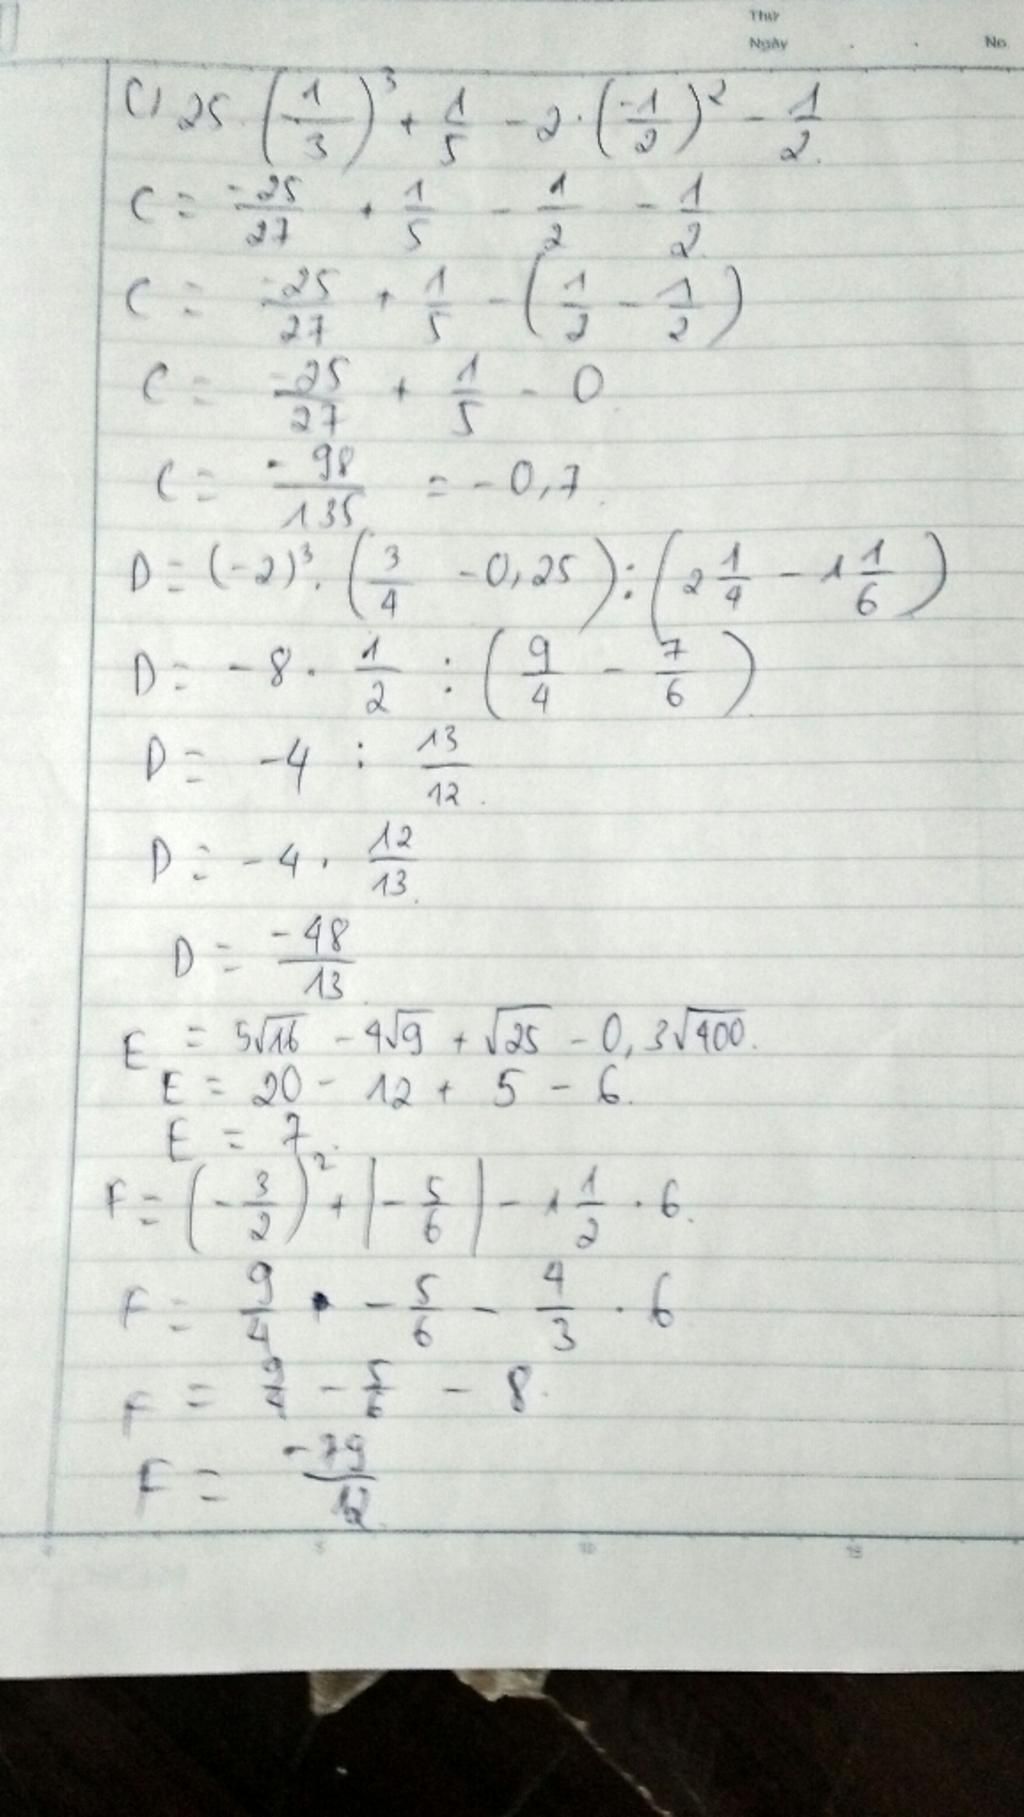 Thứ
Ngày . . No.
C) 25 . (1/3)³ + 1/5 - 2 . (-1/2)² - 1/2
C = -25/27 + 1/5 - 1/2 - 1/2
C = -25/27 + 1/5 - (1/2 - 1/2)
C = -25/27 + 1/5 - 0
C = -98/135 = -0,7
D = (-2)³ . (3/4 - 0,25) : (2 1/4 - 1 1/6)
D = -8 . 1/2 : (9/4 - 7/6)
D = -4 : 13/12
D = -4 . 12/13
D = -48/13
E = 5√16 - 4√9 + √25 - 0,3√400.
E = 20 - 12 + 5 - 6.
E = 7.
F = (-3/2)² + |-5/6| - 1 1/2 . 6.
F = 9/4 - 5/6 - 4/3 . 6
F = 9/4 - 5/6 - 8.
F = -79/12
5 10 15